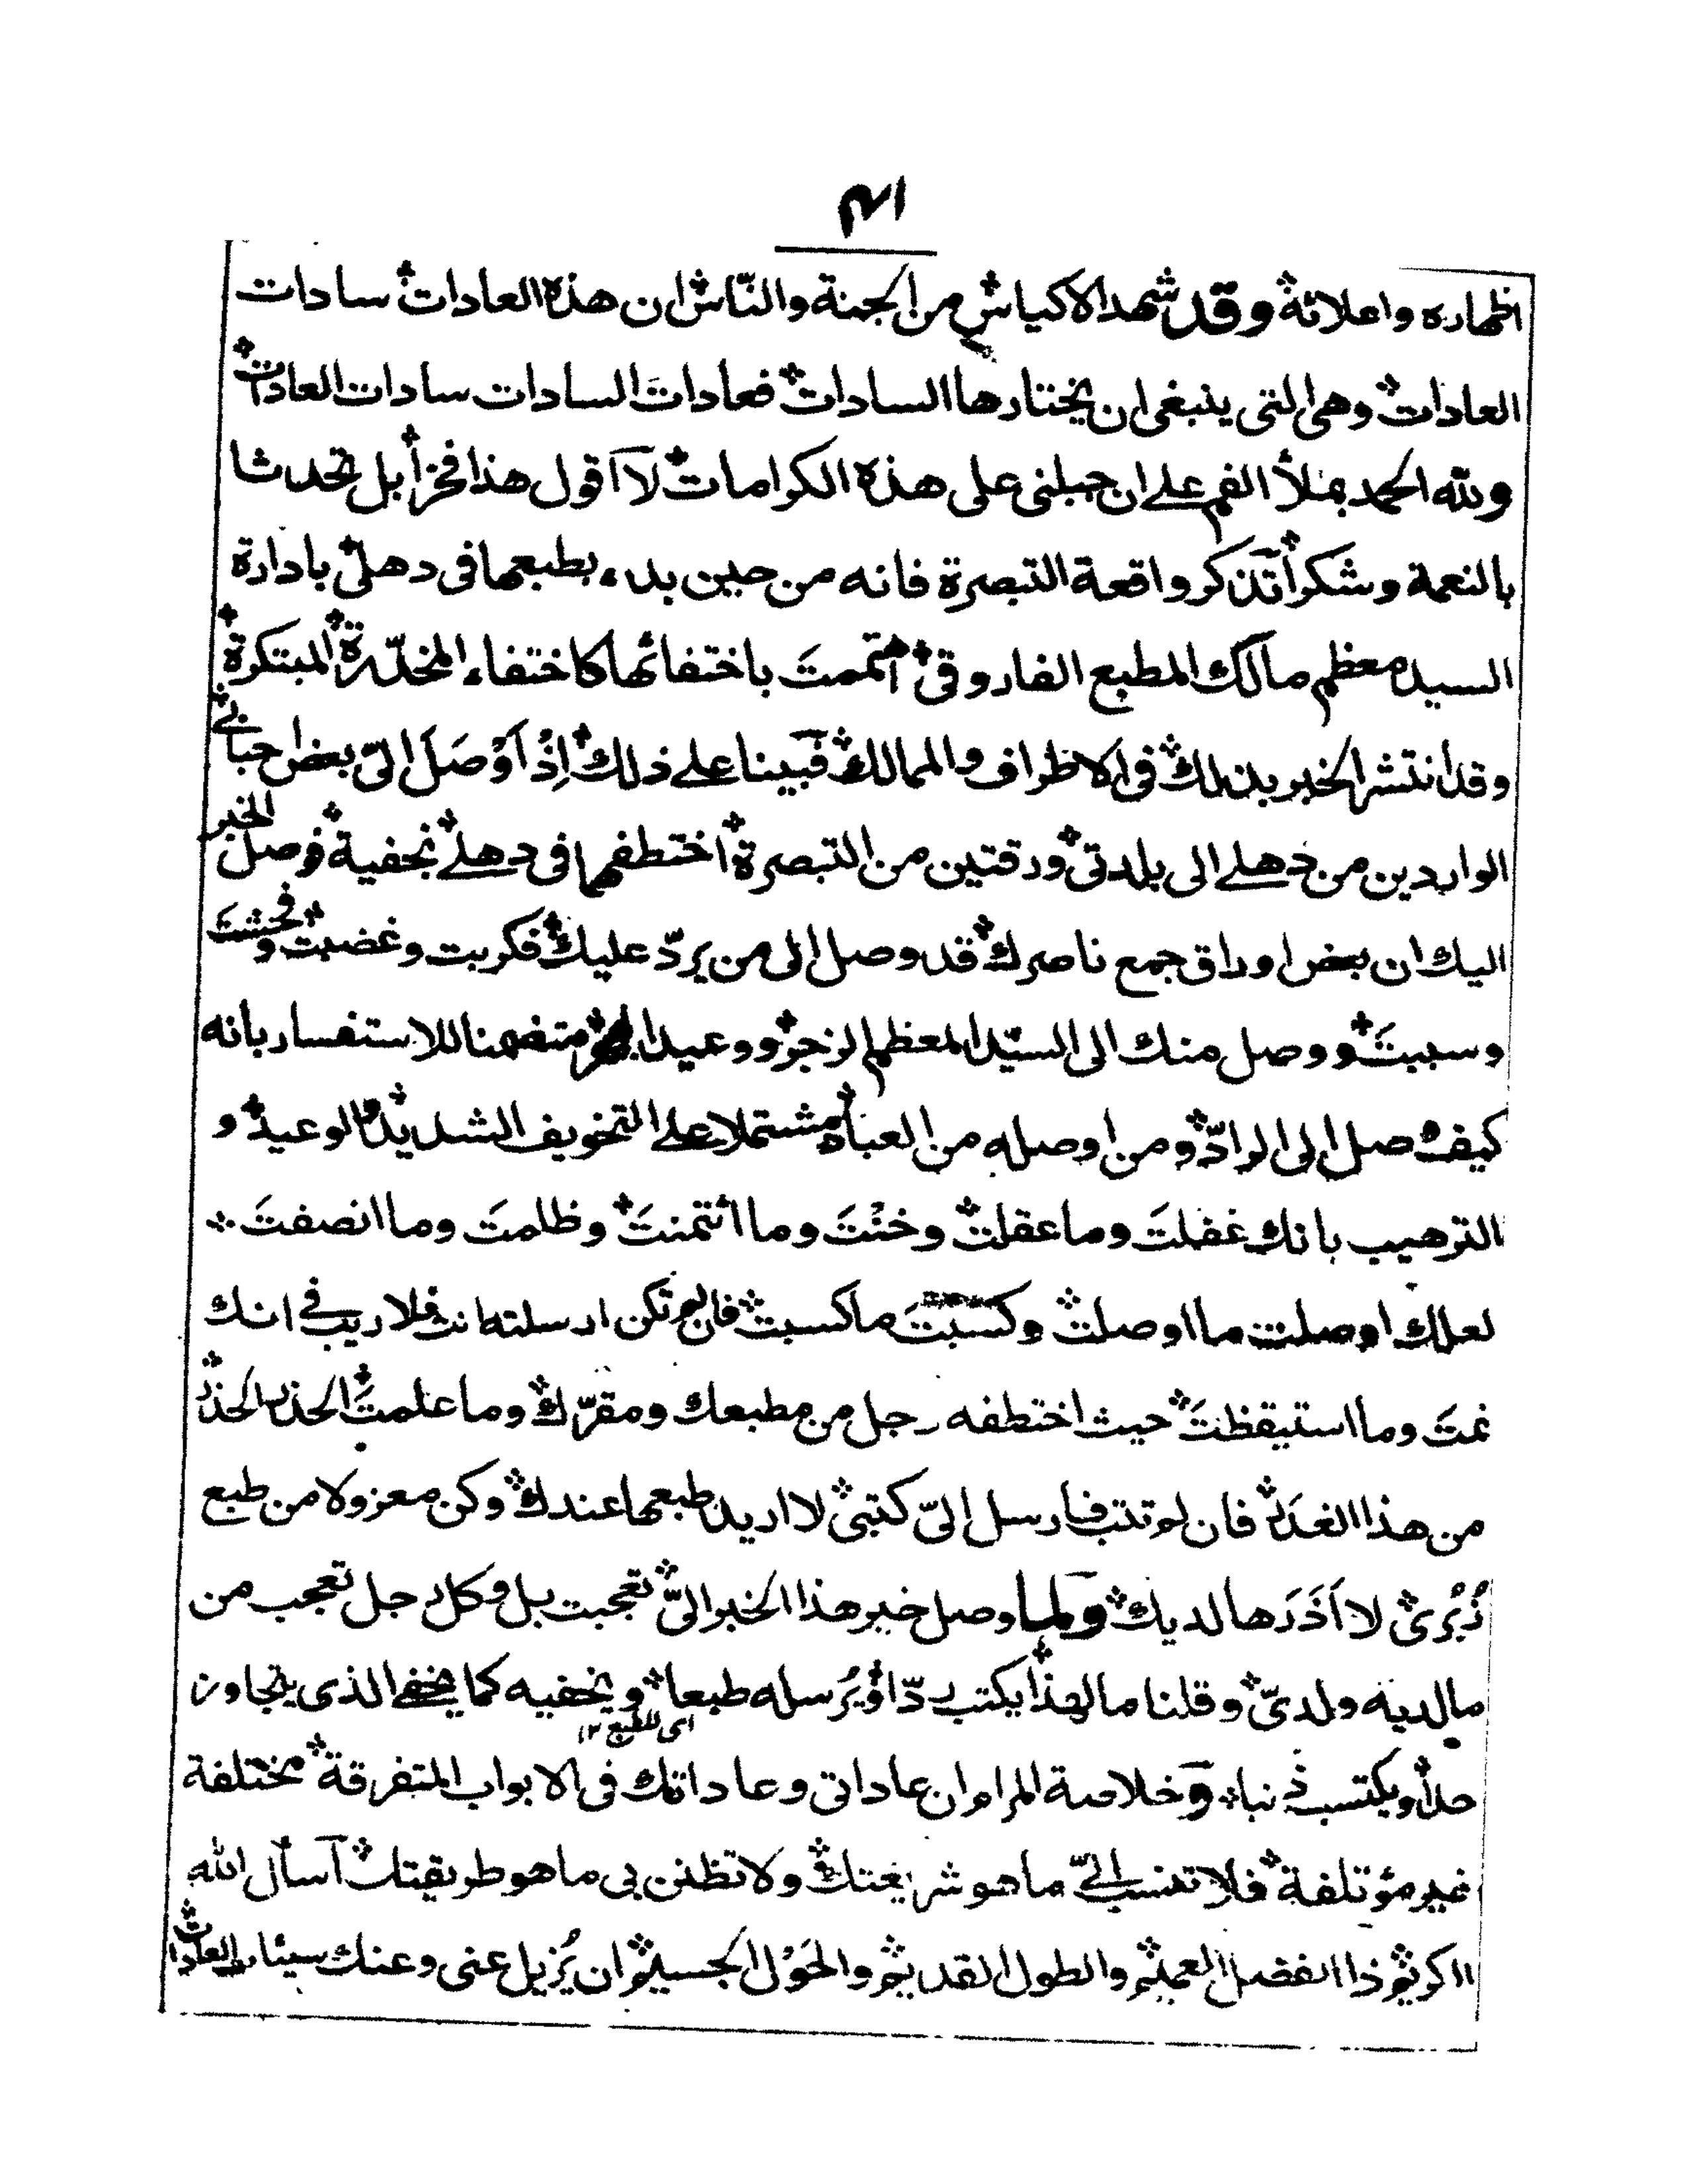 اظهاره واعلانه وقد شهد الاكياس من الجنة والناس ان هذه العادات سادات
العادات وهى التى ينبغى ان يختارها السادات فعادات السادات سادات العادات
ولله الحمد بملأ الفم على ان جبلنى على هذه الكرامات لا اقول هذا فخرا بل تحدثا
بالنعمة وشكرا تذكر واقعة التبصرة فانه من حين بدء بطبعها فى دهلى بادارة
السيد معظم مالك المطبع الفاروقى اهتممت باختفائها كاختفاء المخدّرة المبتكرة
وقد انتشر الخبر بذلك فى الاطراف والممالك فبينا على ذلك اِذْ اَوْصَلَ الىّ بعض احبابى
الواردين من دهلى الى بلدتى ورقتين من التبصرة اختطفهما فى دهلى بخفية فوصل الخبر
اليك ان بعض اوراق جمع ناصرك قد وصل الى من يردّ عليك فكربت وغضبت وفحشت
وسببت ووصل منك الى السيّد المعظم الزجر ووعيد متضمنا للاستفسار بانه
كيف وصل الى الرادّ ومن اوصله من العباد مشتملا على التخويف الشديد والوعيد و
الترهيب بانك غفلتَ وما عقلت وخنْتَ وما ائتمنتَ وظلمتَ وما انصفتَ
لعلك اوصلت ما اوصلت وكسبتَ ما كسبت فان لم تكن ارسلته انت فلا ريب فى انك
نمتَ وما استيقظتَ حيث اختطفه رجل من مطبعك ومقرّك وما علمتَ الحذر الحذر
من هذا الغدر فان لم تتب فارسل الىّ كتبى لا اريد طبعها عندك وكن معزولا من طبع
زُبُرى لا اَذَرَها لديك ولما وصل خبر هذا الخبر الىّ تعجبت بل وكل رجل تعجب من
ما لديه ولدىّ وقلنا ما لهذا يكتب ردّا ويُرسله طبعا ويخفيه كما يخفى الذى يتجاوز
اى للطبع ١٢
حدا ويكتسب ذنبا وخلاصة المرام ان عاداتى وعاداتك فى الابواب المتفرقة مختلفة
غير مؤتلفة فلا تنسب الىّ ما هو شريعتك ولا تظنن بى ما هو طريقتك اسأل الله
الكريم ذا الفضل العميم والطول القديم والحَوْل الجسيم ان يُزيل عنى وعنك سيئات العادات